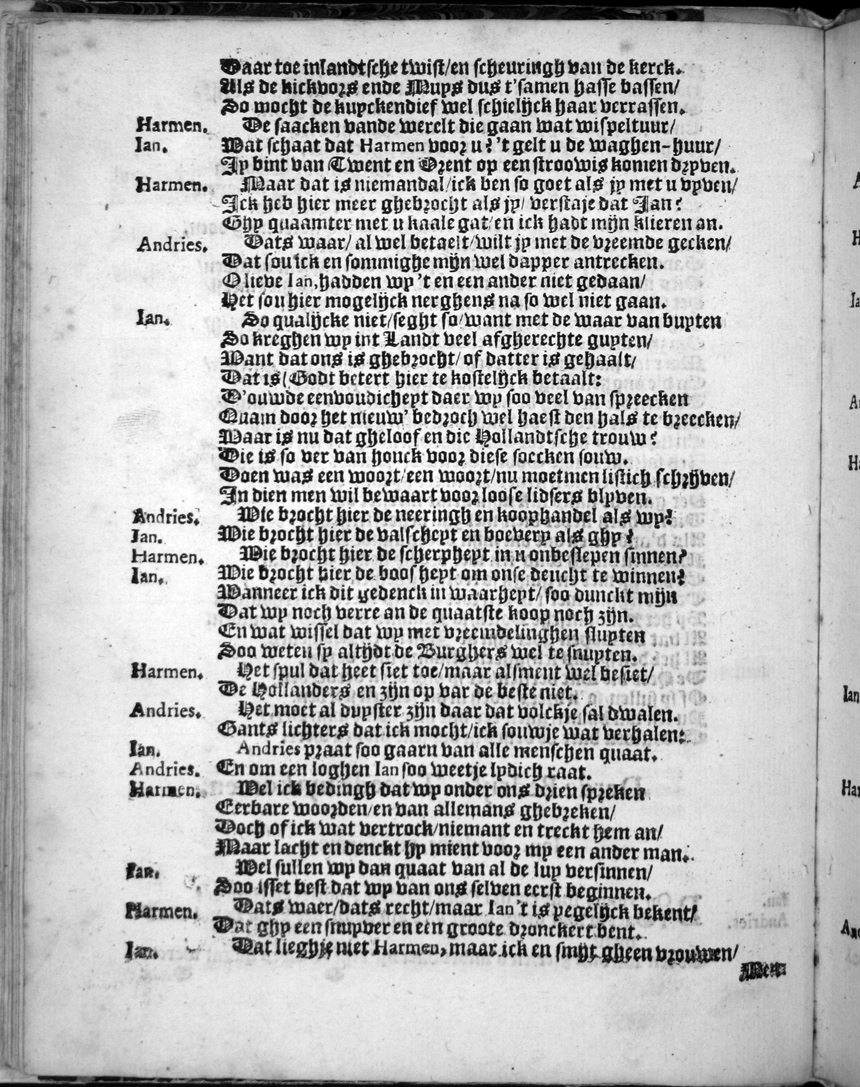 Daar toe inlandtsche twist/en scheuringh van de kerck.
Als de kickvors ende Muys dus t'samen hasse bassen/
So mocht de kuyckendief wel schielijck haar verrassen.
Harmen. De saacken vande werelt die gaan wat wispeltuur/
Ian. Wat schaat dat Harmen voor u? 't gelt u de waghen-huur/
Jy bint van Twent en Drent op een stroowis komen dryven.
Harmen. Maar dat is niemandal/ick ben so goet als jy met u vyven/
Ick heb hier meer ghebrocht als jy/ verstaje dat Jan?
Ghy quaamter met u kaale gat/en ick hadt mijn klieren an.
Andries. Dats waar/ al wel betaelt/wilt jy met de vreemde gecken/
Dat sou ick en sommighe mijn wel dapper antrecken.
O lieve Ian, hadden wy 't een en ander niet gedaan/
Het sou hier mogelijck nerghens na so wel niet gaan.
Ian. So qualijcke niet/seght so/want met de waar van buyten
So kreghen wy int Landt veel afgherechte guyten/
Want dat ons is ghebrocht/of datter is gehaalt/
Dat is (Godt betert hier te kostelijck betaalt:
D'ouwde eenvoudicheyt daer wy soo veel van spreecken
Quam door het nieuw' bedroch wel haest den hals te breecken/
Waar is nu dat gheloof en die Hollandtsche trouw?
Die is so ver van honck voor diese soecken souw.
Doen was een woort/een woort/nu moetmen listich schrijven/
In dien men wil bewaart voor loose lidsers blyven.
Andries. Wie brocht hier de neeringh en koophandel als wy?
Ian. Wie brocht hier de valscheyt en boevery als ghy?
Harmen. Wie brocht hier de scherpheyt in u onbeslepen sinnen?
Ian. Wie brocht hier de boosheyt om onse deucht te winnen?
Wanneer ick dit gedenck in waarheyt/ soo dunckt mijn
Dat wy noch verre an de quaatste koop noch zijn.
En wat wissel dat wy met vreemdelinghen sluyten
Soo weten sy altijdt de Burghers wel te snuyten.
Harmen. Het spul dat heet siet toe/maar alsment wel besiet/
De Hollanders en zijn op var de beste niet.
Andries. Het moet al duyster zijn daar dat volckje sal dwalen.
Gants lichters dat ick mocht/ick souwje wat verhalen:
Ian. Andries praat soo gaarn van alle menschen quaat.
Andries. En om een loghen Ian soo weetje lydich raat.
Harmen. Wel ick bedingh dat wy onder ons drien spreken
Eerbare woorden/en van allemans ghebreken/
Doch of ick wat vertrock/niemant en treckt hem an/
Maar lacht en denckt hy mient voor my een ander man.
Ian. Wel sullen wy dan quaat van al de luy versinnen/
Soo isset best dat wy van ons selven eerst beginnen.
Harmen. Dats waer/dats recht/maar Ian 't is yegelijck bekent/
Dat ghy een snuyver en een groote dronckert bent.
Ian. Dat lieghje niet Harmen, maar ick en smijt gheen vrouwen/
Men